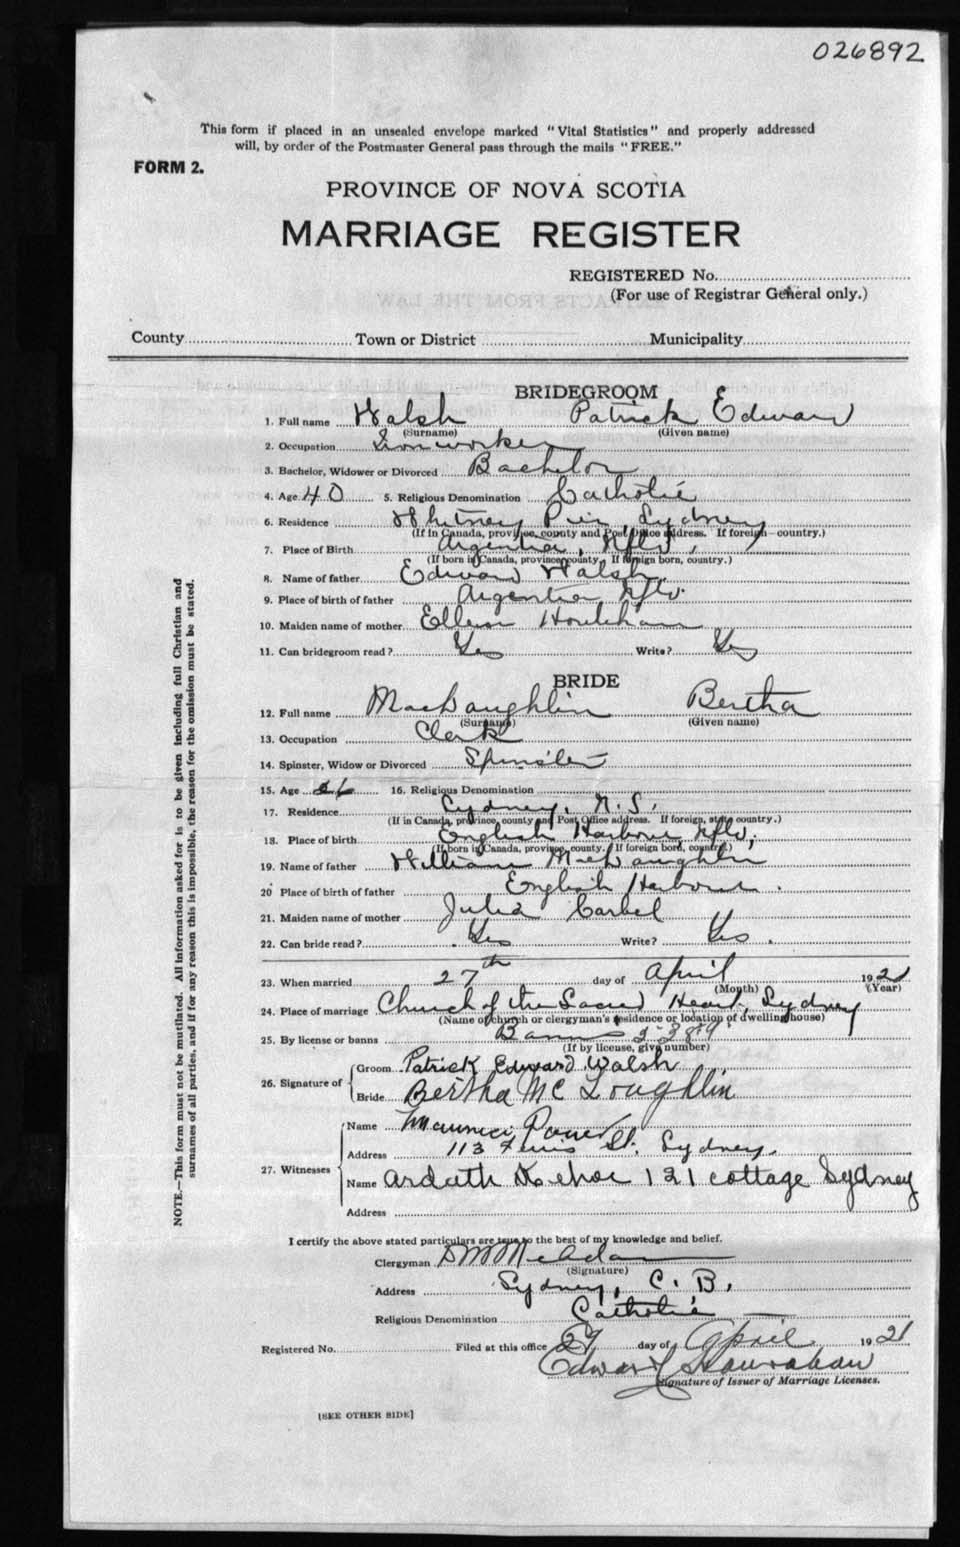 026892
This form if placed in an unsealed envelope marked "Vital Statistics" and properly addressed
will, by order of the Postmaster General pass through the mails "FREE."
FORM 2.
PROVINCE OF NOVA SCOTIA
MARRIAGE REGISTER
REGISTERED No.
(For use of Registrar General only.)
County Town or District Municipality
BRIDEGROOM
1. Full name Walsh Patrick Edward
(Surname) (Given name)
2. Occupation Ironworker
3. Bachelor, Widower or Divorced Bachelor
4. Age 40 5. Religious Denomination Catholic
6. Residence Whitney Pier, Sydney
(If in Canada, province, county and Post Office address. If foreign—country.)
7. Place of Birth Argentia, Nfld.
(If born in Canada, province, county. If foreign born, country.)
8. Name of father Edward Walsh
9. Place of birth of father Argentia Nfld.
10. Maiden name of mother Ellen Houlehan
11. Can bridegroom read? Yes Write? Yes
BRIDE
12. Full name MacLaughlin Bertha
(Surname) (Given name)
13. Occupation Clerk
14. Spinster, Widow or Divorced Spinster
15. Age 26 16. Religious Denomination
17. Residence Sydney, N.S.
(If in Canada, province, county and Post Office address. If foreign, state country.)
18. Place of birth English Harbour Nfld.
(If born in Canada, province, county. If foreign born, country.)
19. Name of father William McLaughlin
20 Place of birth of father English Harbour.
21. Maiden name of mother Julia
22. Can bride read? Yes Write? Yes.
23. When married 27th day of April 1921
(Month) (Year)
24. Place of marriage Church of the Sacred Heart, Sydney
(Name of church or clergyman's residence or location of dwelling house)
25. By license or banns Banns
(If by license, give number)
26. Signature of
Groom Patrick Edward Walsh
Bride Bertha Mc Loughlin
27. Witnesses
Name Power
Address 113 St. Sydney.
Name Ardath Kehoe 121 Cottage Sydney
Address
I certify the above stated particulars are true to the best of my knowledge and belief.
Clergyman
(Signature)
Address Sydney, C. B.
Religious Denomination Catholic
Registered No. Filed at this office 27 day of April 1921
Edward
Signature of Issuer of Marriage Licenses.
[SEE OTHER SIDE]
NOTE.—This form must not be mutilated. All information asked for is to be given including full Christian and
surnames of all parties, and if for any reason this is impossible, the reason for the omission must be stated.